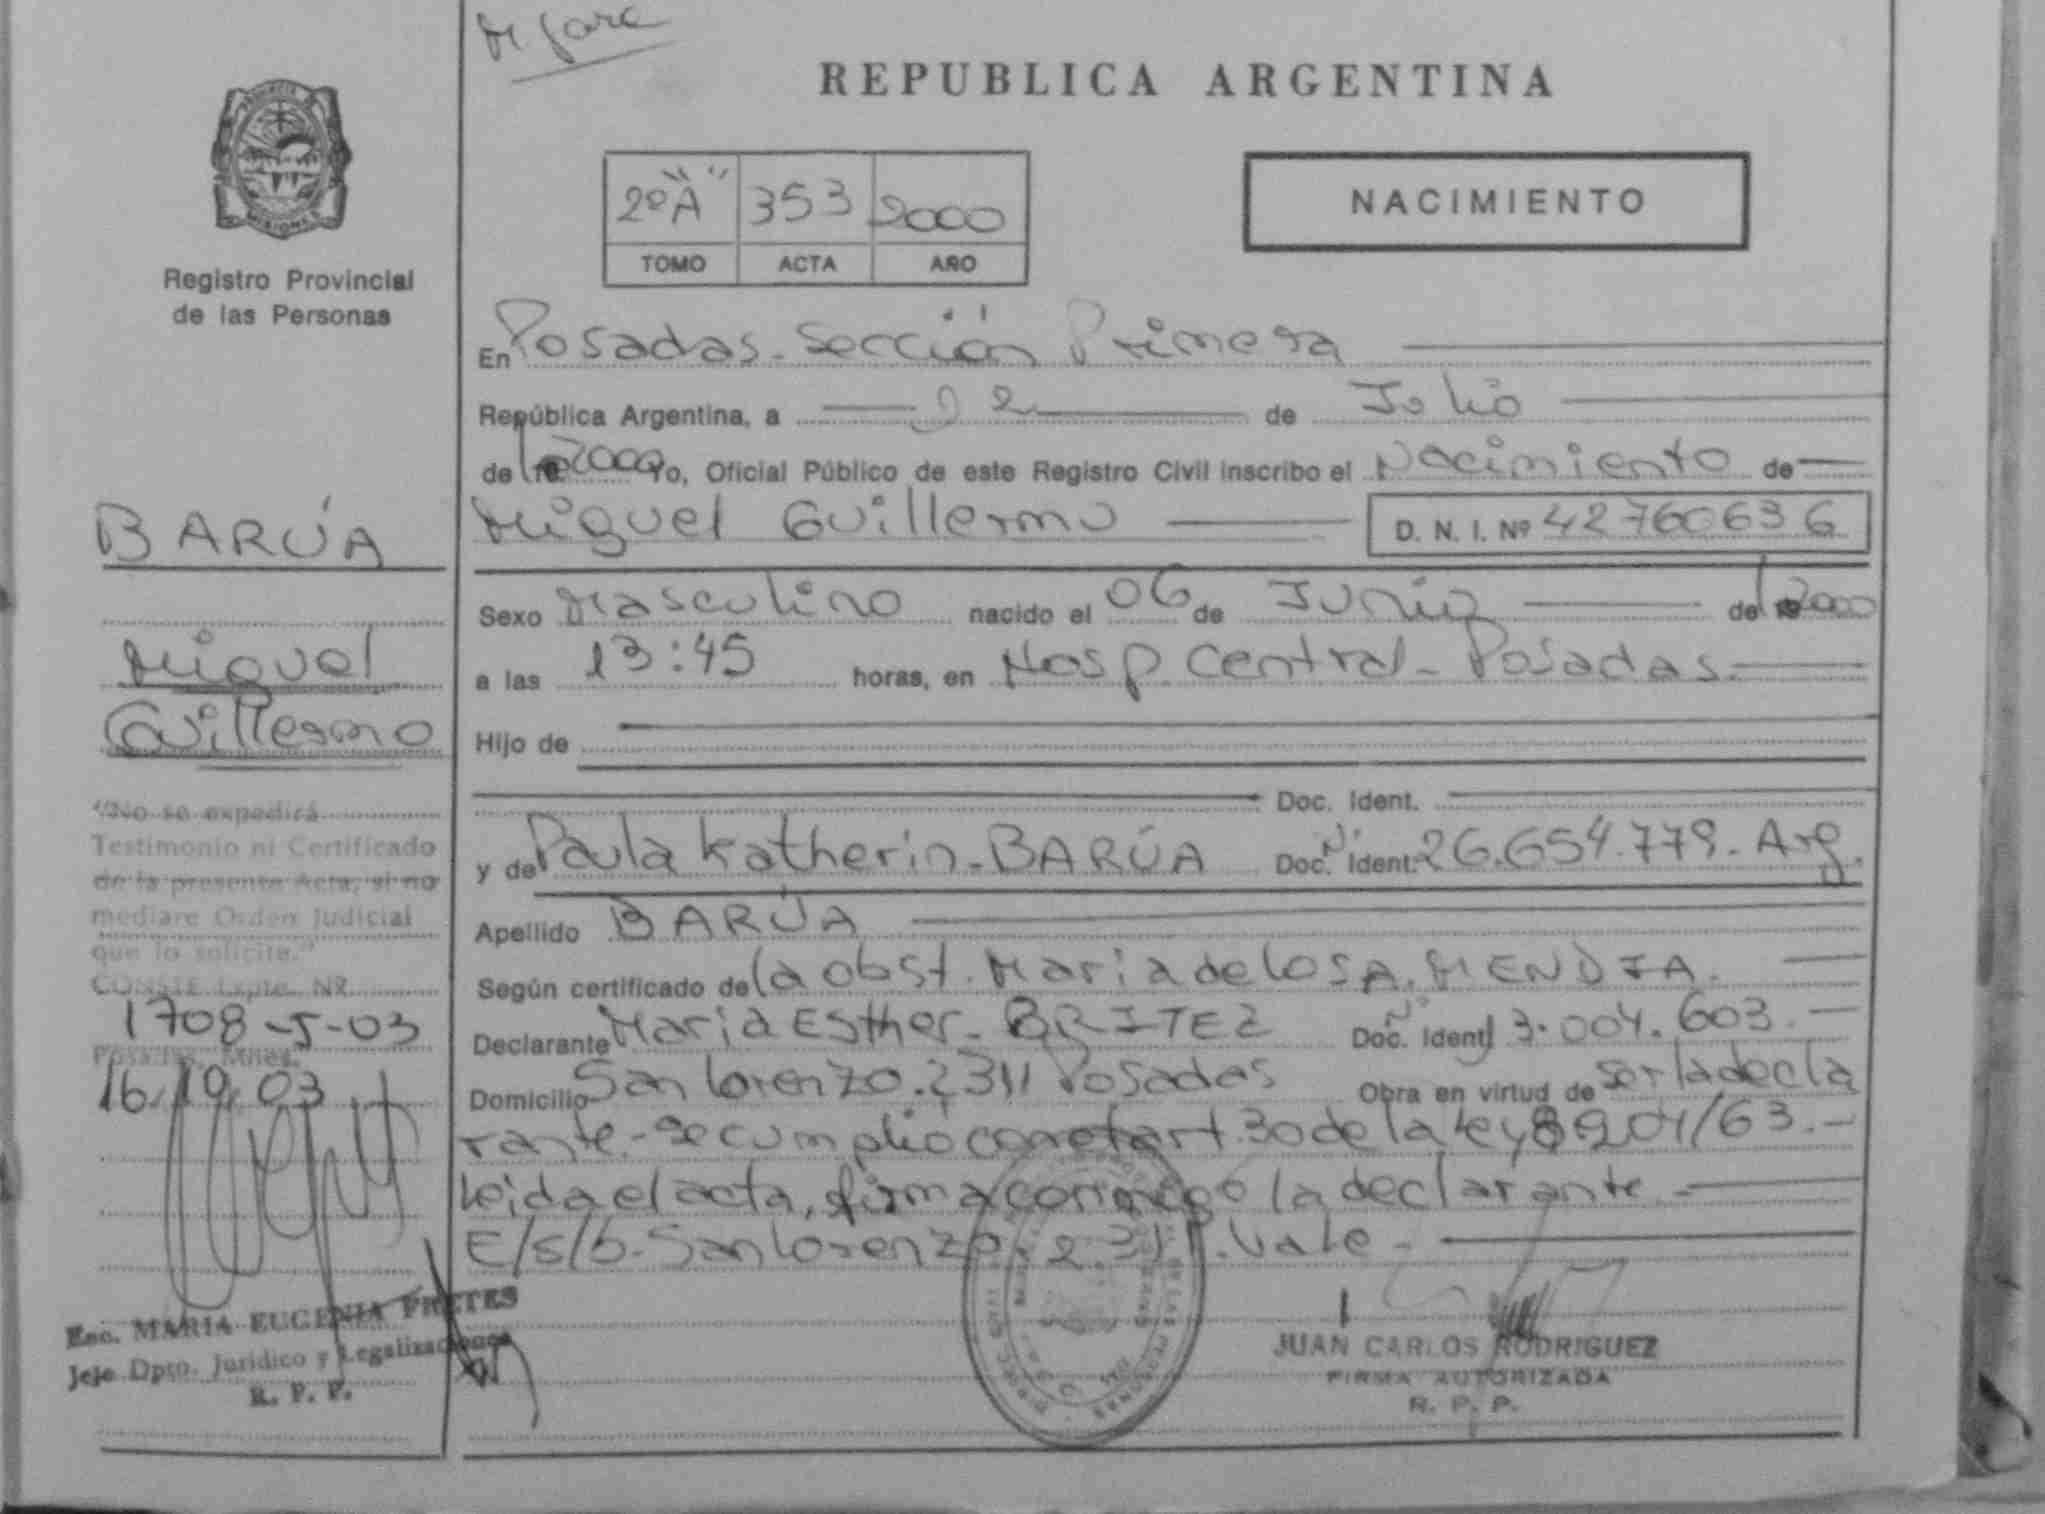 REPUBLICA ARGENTINA
PROVINCIA DE
MISIONES
Registro Provincial
de las Personas
2º "A" 353 2000
TOMO ACTA AÑO
NACIMIENTO
En Posadas - Sección Primera
República Argentina, a 02 de Julio
de 2000 Yo, Oficial Público de este Registro Civil inscribo el Nacimiento de
Miguel Guillermo D. N. I. Nº 42760636
Sexo Masculino nacido el 06 de Junio de 2000
a las 13:45 horas, en Hosp. Central - Posadas
Hijo de
Doc. Ident.
y de Paula Katherin - BARÚA Doc. Nº Ident. 26.654.779 - Arg.
Apellido BARÚA
Según certificado de la obst. Maria de los A. MENDIA.
Declarante Maria Esther - BRITEZ Doc. Nº Ident. 13.004.603. -
Domicilio San Lorenzo. 2311 Posadas Obra en virtud de ser la decla
rante. - Se cumplió con el art. 30 de la Ley 8204/63. -
leida el acta, firma conmigo la declarante -
E/s/b - San Lorenzo 2311. Vale -
JUAN CARLOS RODRIGUEZ
FIRMA AUTORIZADA
R. P. P.
BARÚA
Miguel
Guillermo
"No se expedirá
Testimonio ni Certificado
de la presente Acta, si no
mediare Orden Judicial
que lo solicite."
CONSTE Expte. Nº
1708 - 5 - 03
Posadas, Mnes.
16/10/03
Esc. MARIA EUGENIA FRETES
Jefe Dpto. Jurídico y Legalizaciones
R. P. P.